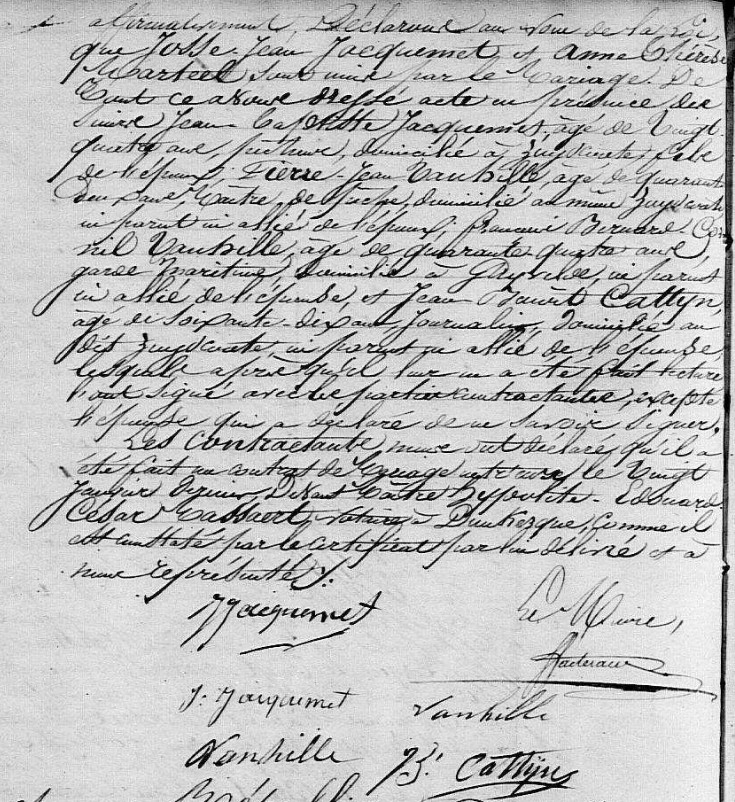 affirmativement, Déclarons au nom de la Loi,
que Josse Jean Jacquemet et Anne Thérèse
Marteel sont unis par le Mariage. De
Tout ce avons dressé acte en présence des
sieurs Jean Baptiste Jacquemet, âgé de Vingt-
quatre ans, pêcheur, domicilié à Zuydcoote, frère
de l'époux, Pierre-Jean Vanhille, âgé de quarante
deux ans, Maître de pêche, domicilié au même Zuydcoote
ni parent ni allié de l'époux, Bernard Cor-
nil Vanhille, âgé de quarante quatre ans,
garde maritime, domicilié à Ghyvelde, ni parent
ni allié de l'épouse, et Jean Benoît Cattÿn,
âgé de soixante-dix ans, Journalier, domicilié au
dit Zuydcoote, ni parent ni allié de l'épouse,
lesquels après qu'il leur en a été fait lecture
l'ont signé avec les parties contractantes, excepté
l'épouse qui a déclaré de ne savoir signer.
Les contractants nous ont déclaré qu'il a
été fait un contrat de Mariage entre eux, le Vingt
Janvier dernier, Devant Maître Hyppolite-Edouard-
César Tassaert, notaire à Dunkerque, comme il
est constaté par le certificat par lui délivré et à
nous représenté.
JJacquemet
Le Maire,
J. Jacquemet
Vanhille
Vanhille
B. Cattÿn